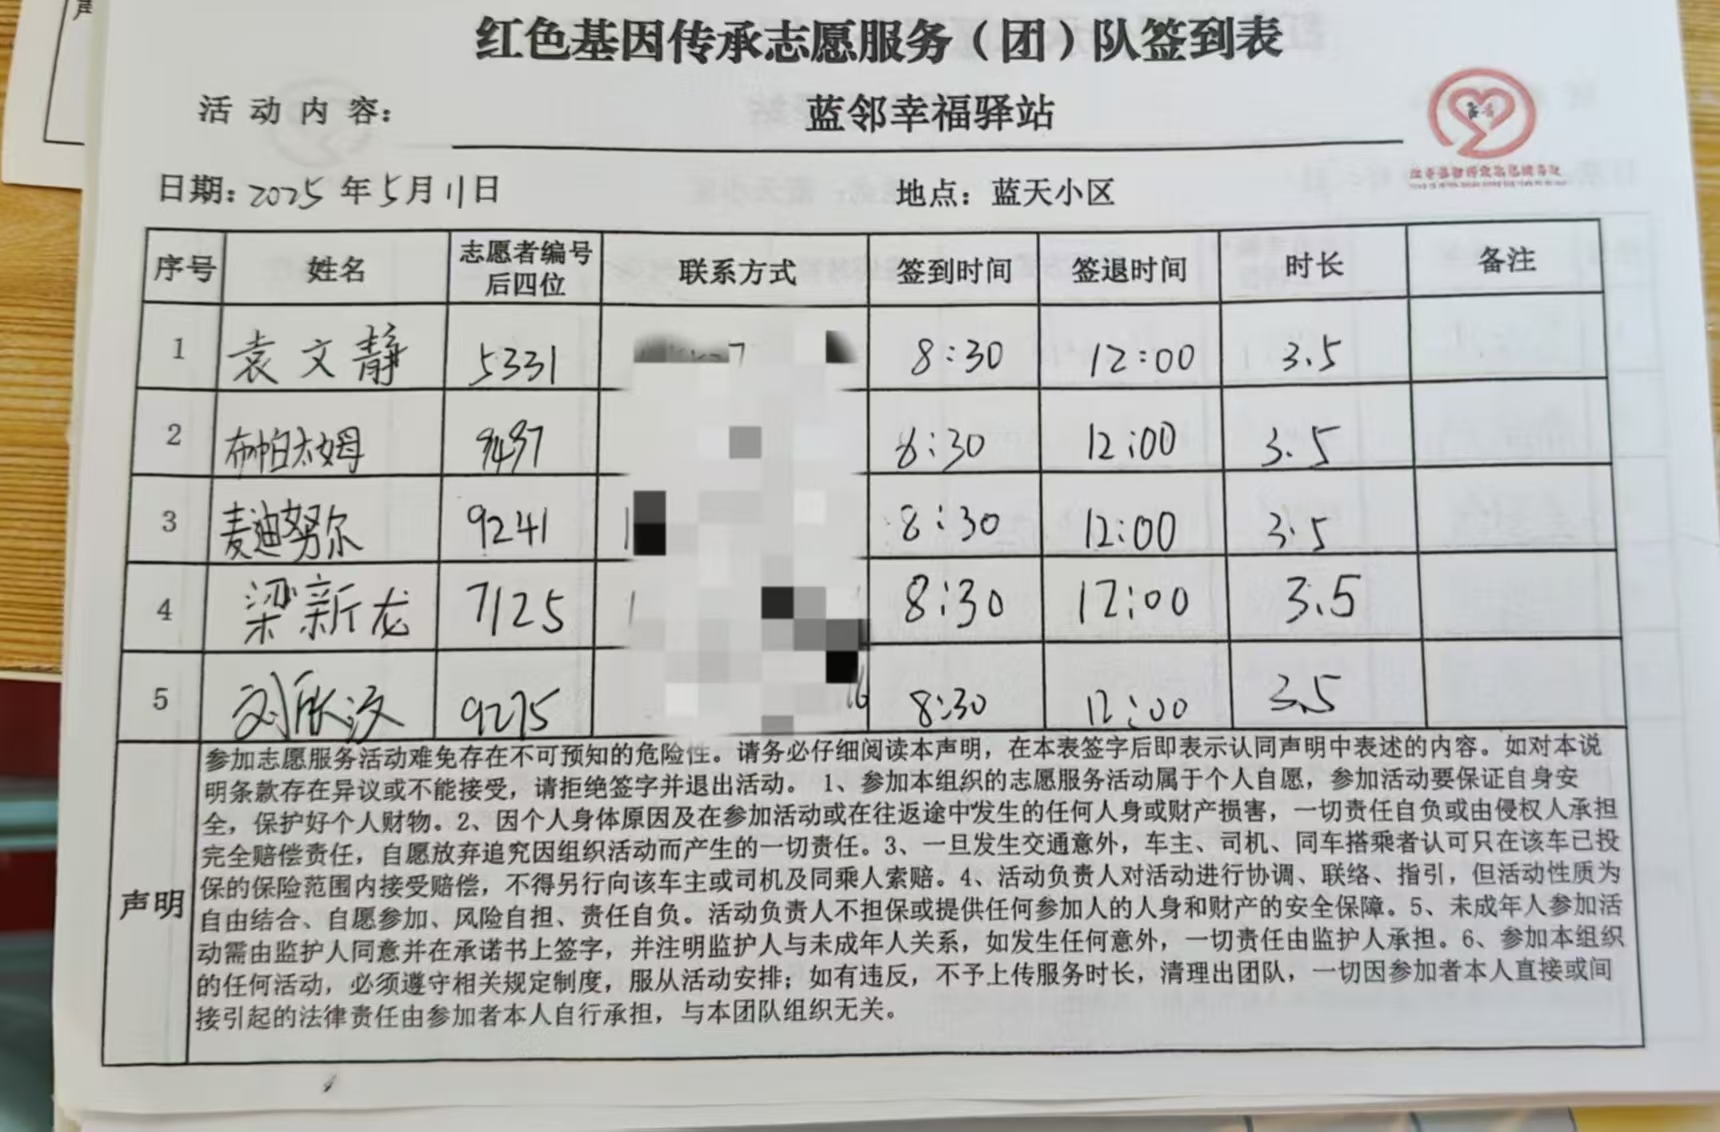 红色基因传承志愿服务（团）队签到表
活动内容：蓝邻幸福驿站
日期：2025年5月11日 地点：蓝天小区
序号 姓名 志愿者编号后四位 联系方式 签到时间 签退时间 时长 备注
1 袁文静 5331 8:30 12:00 3.5
2 布帕太姆 9497 8:30 12:00 3.5
3 麦迪努尔 9241 8:30 12:00 3.5
4 梁新龙 7125 8:30 12:00 3.5
5 刘欣汝 9275 8:30 12:00 3.5
声明
参加志愿服务活动难免存在不可预知的危险性。请务必仔细阅读本声明，在本表签字后即表示认同声明中表述的内容。如对本说
明条款存在异议或不能接受，请拒绝签字并退出活动。1、参加本组织的志愿服务活动属于个人自愿，参加活动要保证自身安
全，保护好个人财物。2、因个人身体原因及在参加活动或在往返途中发生的任何人身或财产损害，一切责任自负或由侵权人承担
完全赔偿责任，自愿放弃追究因组织活动而产生的一切责任。3、一旦发生交通意外，车主、司机、同车搭乘者认可只在该车已投
保的保险范围内接受赔偿，不得另行向该车主或司机及同乘人索赔。4、活动负责人对活动进行协调、联络、指引，但活动性质为
自由结合、自愿参加、风险自担、责任自负。活动负责人不担保或提供任何参加人的人身和财产的安全保障。5、未成年人参加活
动需由监护人同意并在承诺书上签字，并注明监护人与未成年人关系，如发生任何意外，一切责任由监护人承担。6、参加本组织
的任何活动，必须遵守相关规定制度，服从活动安排；如有违反，不予上传服务时长，清理出团队，一切因参加者本人直接或间
接引起的法律责任由参加者本人自行承担，与本团队组织无关。